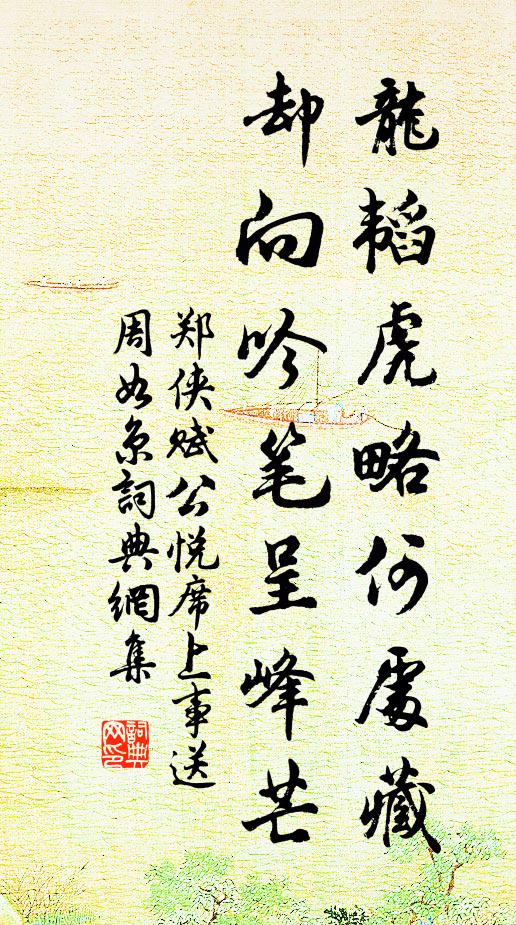 龍韜虎略何處藏
却向吟笔呈峰芒
郑侠赋公悦席上事送
周如京詞典網集
詞典
网印